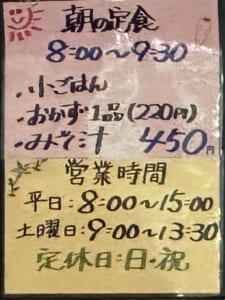 朝の定食
8:00〜9:30
・小ごはん
・おかず1品(220円)
・みそ汁 450円
営業時間
平日:8:00〜15:00
土曜日:9:00〜13:30
定休日:日・祝